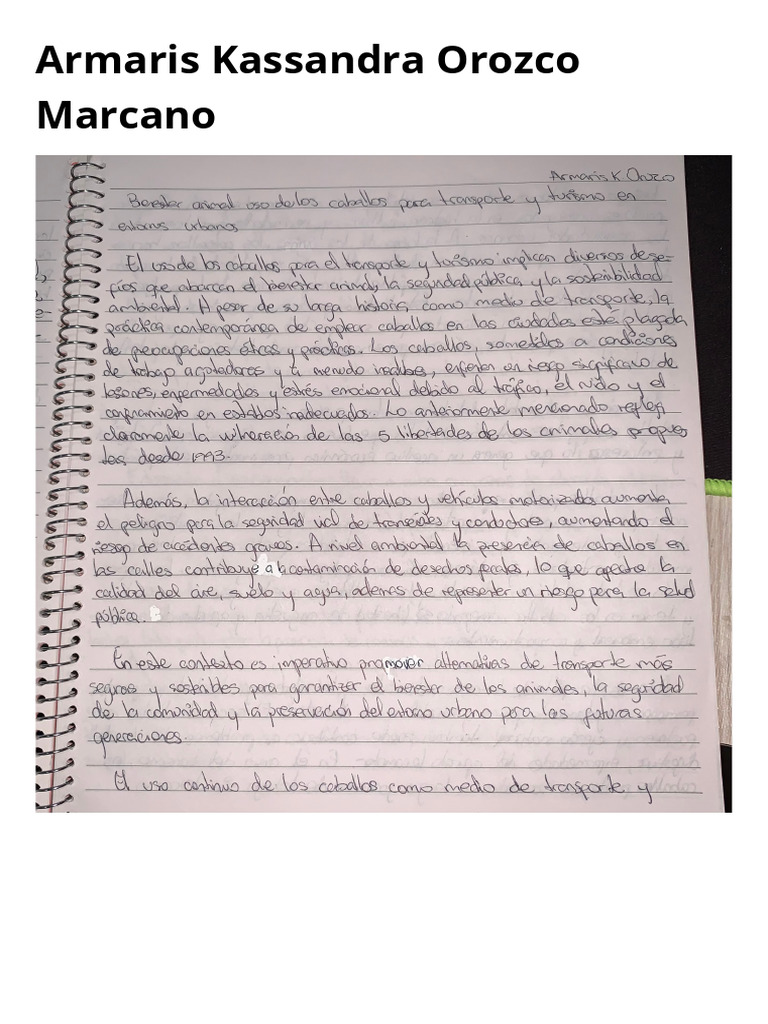 Armaris Kassandra Orozco
Marcano
Armaris K. Orozco
Bienestar animal uso de los caballos para transporte y turismo en
entornos urbanos
El uso de los caballos para el transporte y turismo implican diversos desa-
fíos que abarcan el bienestar animal, la seguridad pública, y la sostenibilidad
ambiental. A pesar de su larga historia, como medio de transporte, la
práctica contemporánea de emplear caballos en las ciudades está plagada
de preocupaciones éticas y prácticas. Los caballos, sometidos a condiciones
de trabajo agotadores y a menudo insalubres, enfrentan un riesgo significativo de
lesiones, enfermedades y estrés emocional debido al tráfico, el ruido y el
confinamiento en establos inadecuados. Lo anteriormente mencionado refleja
claramente la vulneración de las 5 libertades de los animales propues
tas desde 1993.
Además, la interacción entre caballos y vehículos motorizados aumenta
el peligro para la seguridad vial de transeúntes y conductores, aumentando el
riesgo de accidentes graves. A nivel ambiental la presencia de caballos en
las calles contribuye a la contaminación de desechos fecales, lo que afecta la
calidad del aire, suelo y agua, además de representar un riesgo para la salud
pública.
En este contexto es imperativo promover alternativas de transporte más
seguros y sostenibles para garantizar el bienestar de los animales, la seguridad
de la comunidad y la preservación del entorno urbano para las futuras
generaciones.
El uso continuo de los caballos como medio de transporte y